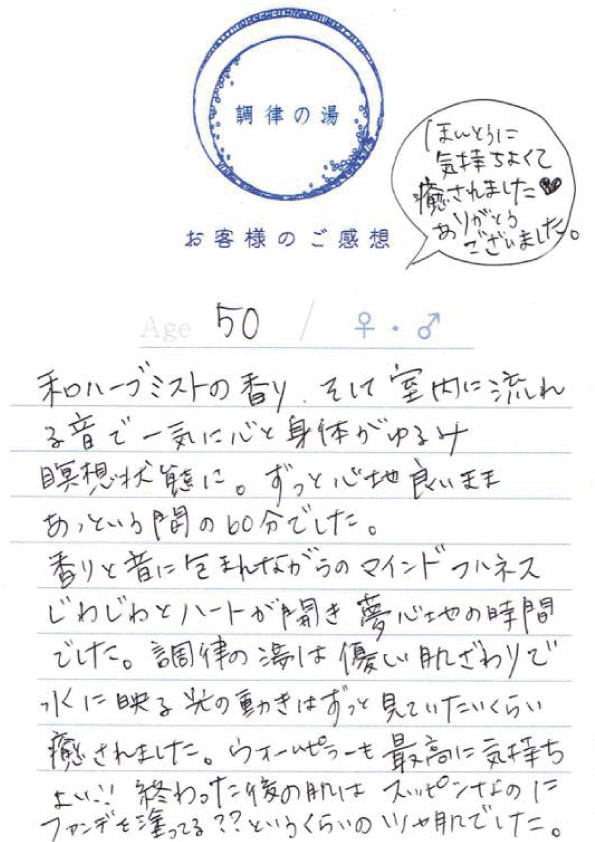 調律の湯
ほんとうに
気持ちよくて
癒されました♥
ありがとう
ございました。
お客様のご感想
Age 50 / ♀・♂
和ハーブミストの香り、そして室内に流れ
る音で一気に心と身体がゆるみ
瞑想状態に。ずっと心地良いまま
あっという間の60分でした。
香りと音に包まれながらのマインドフルネス
じわじわとハートが開き夢心地の時間
でした。調律の湯は優しい肌ざわりで
水に映る光の動きはずっと見ていたいくらい
癒されました。ウォールピラーも最高に気持ち
よい!! 終わった後の肌はスッピンなのに
ファンデを塗ってる??というくらいのツヤ肌でした。